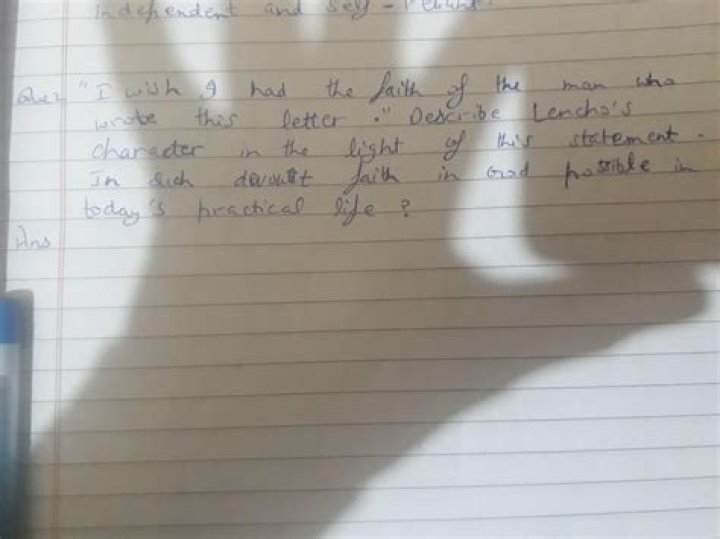 independent and self-reliant.
Que2 "I wish I had the faith of the man who
wrote this letter." Describe Lencho's
character in the light of this statement.
In such devoutt faith in God possible in
today's practical life ?
Ans